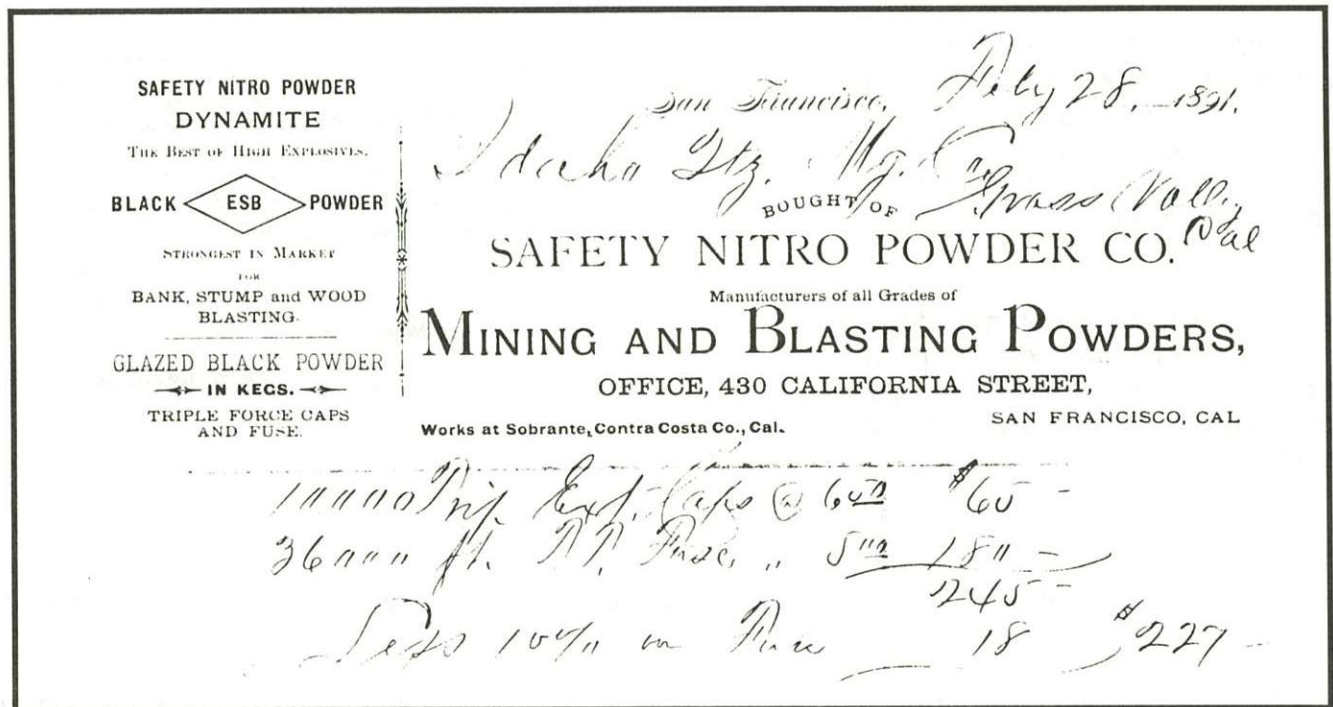 SAFETY NITRO POWDER
DYNAMITE
THE BEST OF HIGH EXPLOSIVES.
BLACK ESB POWDER
STRONGEST IN MARKET
FOR
BANK, STUMP and WOOD
BLASTING.
GLAZED BLACK POWDER
IN KEGS.
TRIPLE FORCE CAPS
AND FUSE.
San Francisco, Feby 28. 1891.
Idaho Qtz. Mg. Co.
Grass Valley
Cal
BOUGHT OF
SAFETY NITRO POWDER CO.
Manufacturers of all Grades of
MINING AND BLASTING POWDERS,
OFFICE, 430 CALIFORNIA STREET,
Works at Sobrante, Contra Costa Co., Cal. SAN FRANCISCO, CAL
10000 Trip. Caps @ 6 50 $65 -
36000 ft. Fuse, " 5 00 180 -
245 -
Less 10% on Fuse 18 $227 -